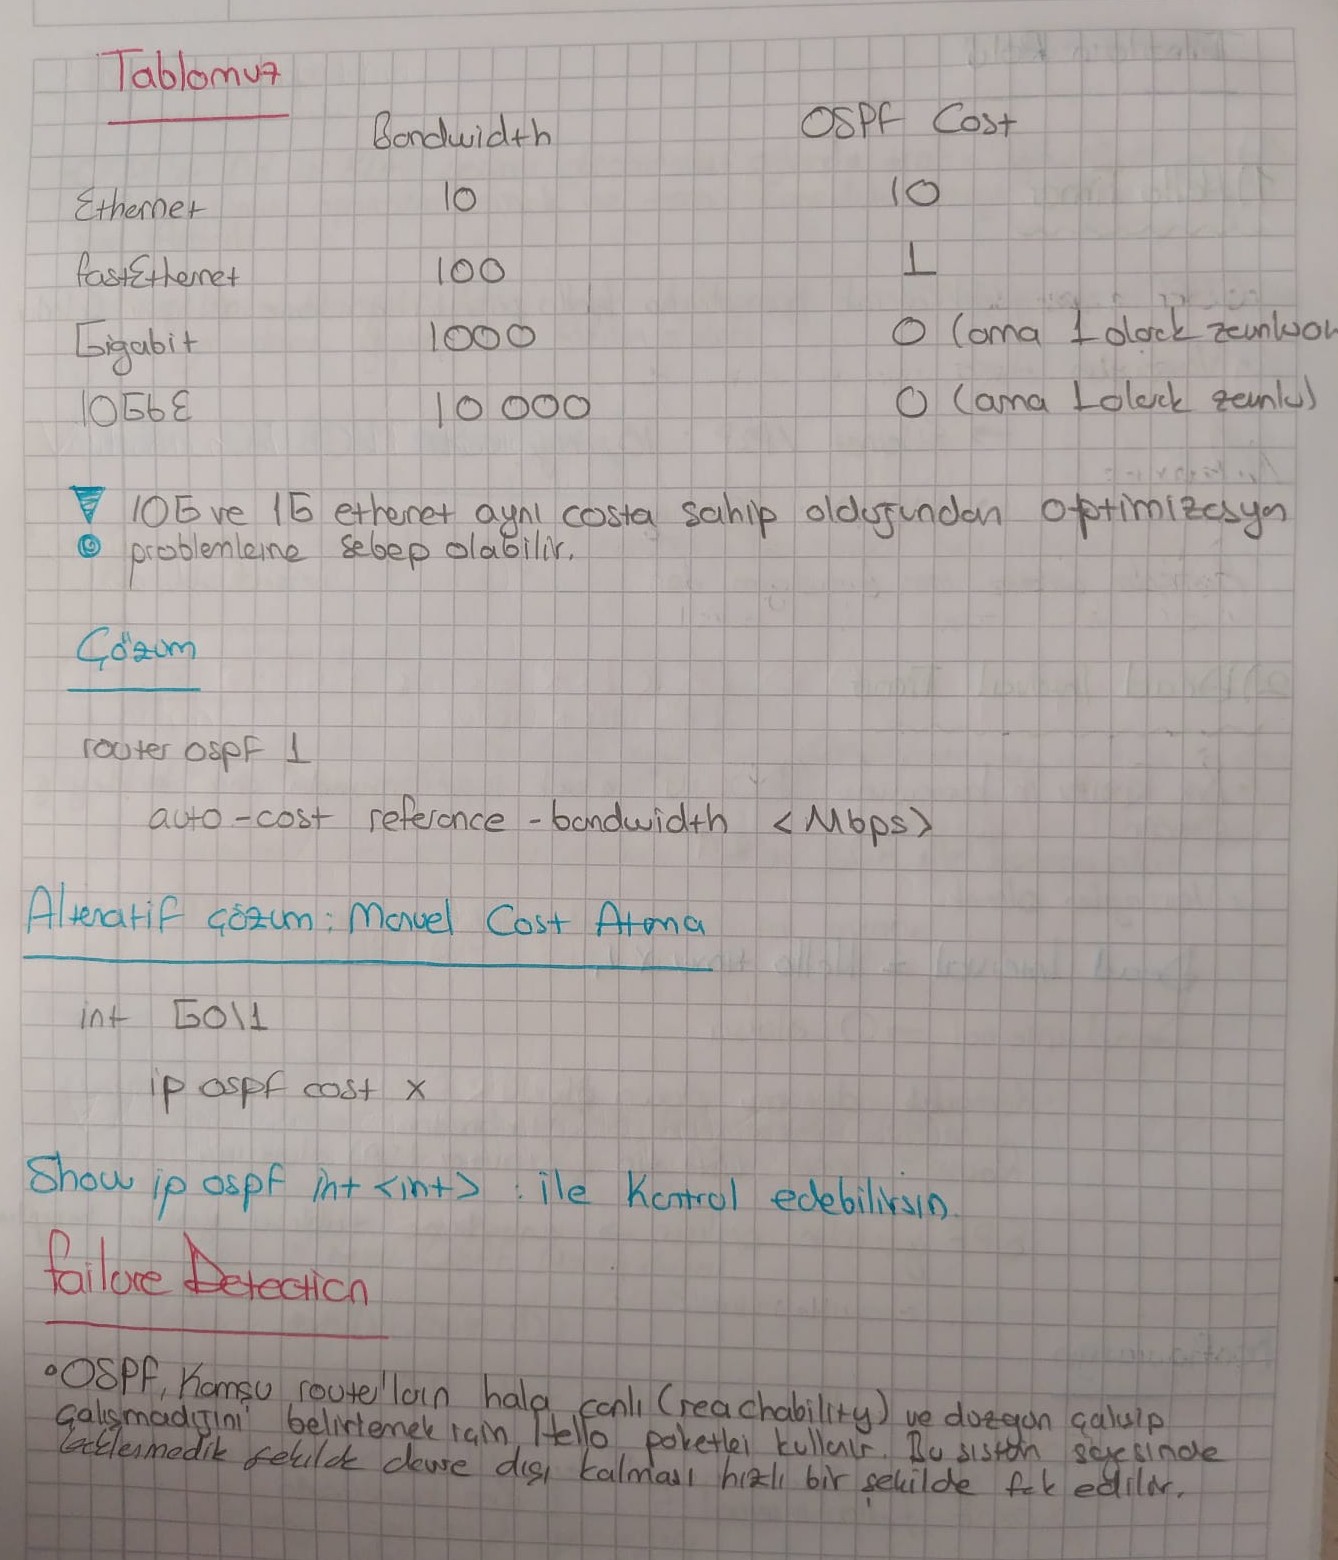 Tablomuz
Bandwidth OSPF Cost
Ethernet 10 10
fastEthernet 100 1
Gigabit 1000 0 (ama 1 olarak zorunlu
10GbE 10 000 0 (ama 1 olarak zorunlu)
10G ve 1G ethernet aynı costa sahip olduğundan optimizasyon
problemlerine sebep olabilir.
Çözüm
router ospf 1
auto-cost reference-bandwidth <Mbps>
Alternatif çözüm: Manuel Cost Atama
int G0\1
ip ospf cost x
Show ip ospf int <int> : ile Kontrol edebilirsin.
failure Detection
• OSPF, Komşu router'ların hala canlı (reachability) ve düzgün çalışıp
çalışmadığını belirlemek için Hello paketleri kullanır. Bu sistem sayesinde
beklenmedik şekilde devre dışı kalması hızlı bir şekilde fark edilir.